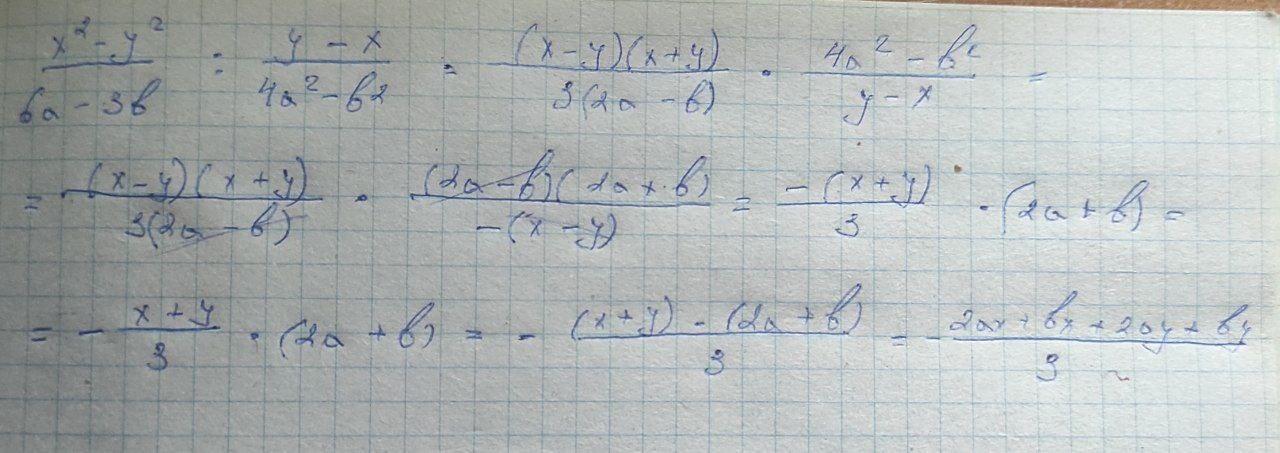 (x² - y²)/(6a - 3b) : (y - x)/(4a² - b2) = ((x - y)(x + y))/(3(2a - b)) · (4a² - b²)/(y - x) =
= ((x - y)(x + y))/(3(2a - b)) · ((2a - b)(2a + b))/(-(x - y)) = (-(x + y))/3 · (2a + b) =
= - (x + y)/3 · (2a + b) = - ((x + y) - (2a + b))/3 = - (2ax + bx + 2ay + by)/3